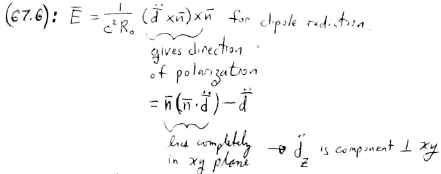 (67.6): E̅ = 1/(c²R₀) (d̈ × n̅) × n̅ for dipole radiation.
gives direction
of polarization
= n̅(n̅·d̈) − d̈
lies completely
in xy plane → d̈_z is component ⊥ xy